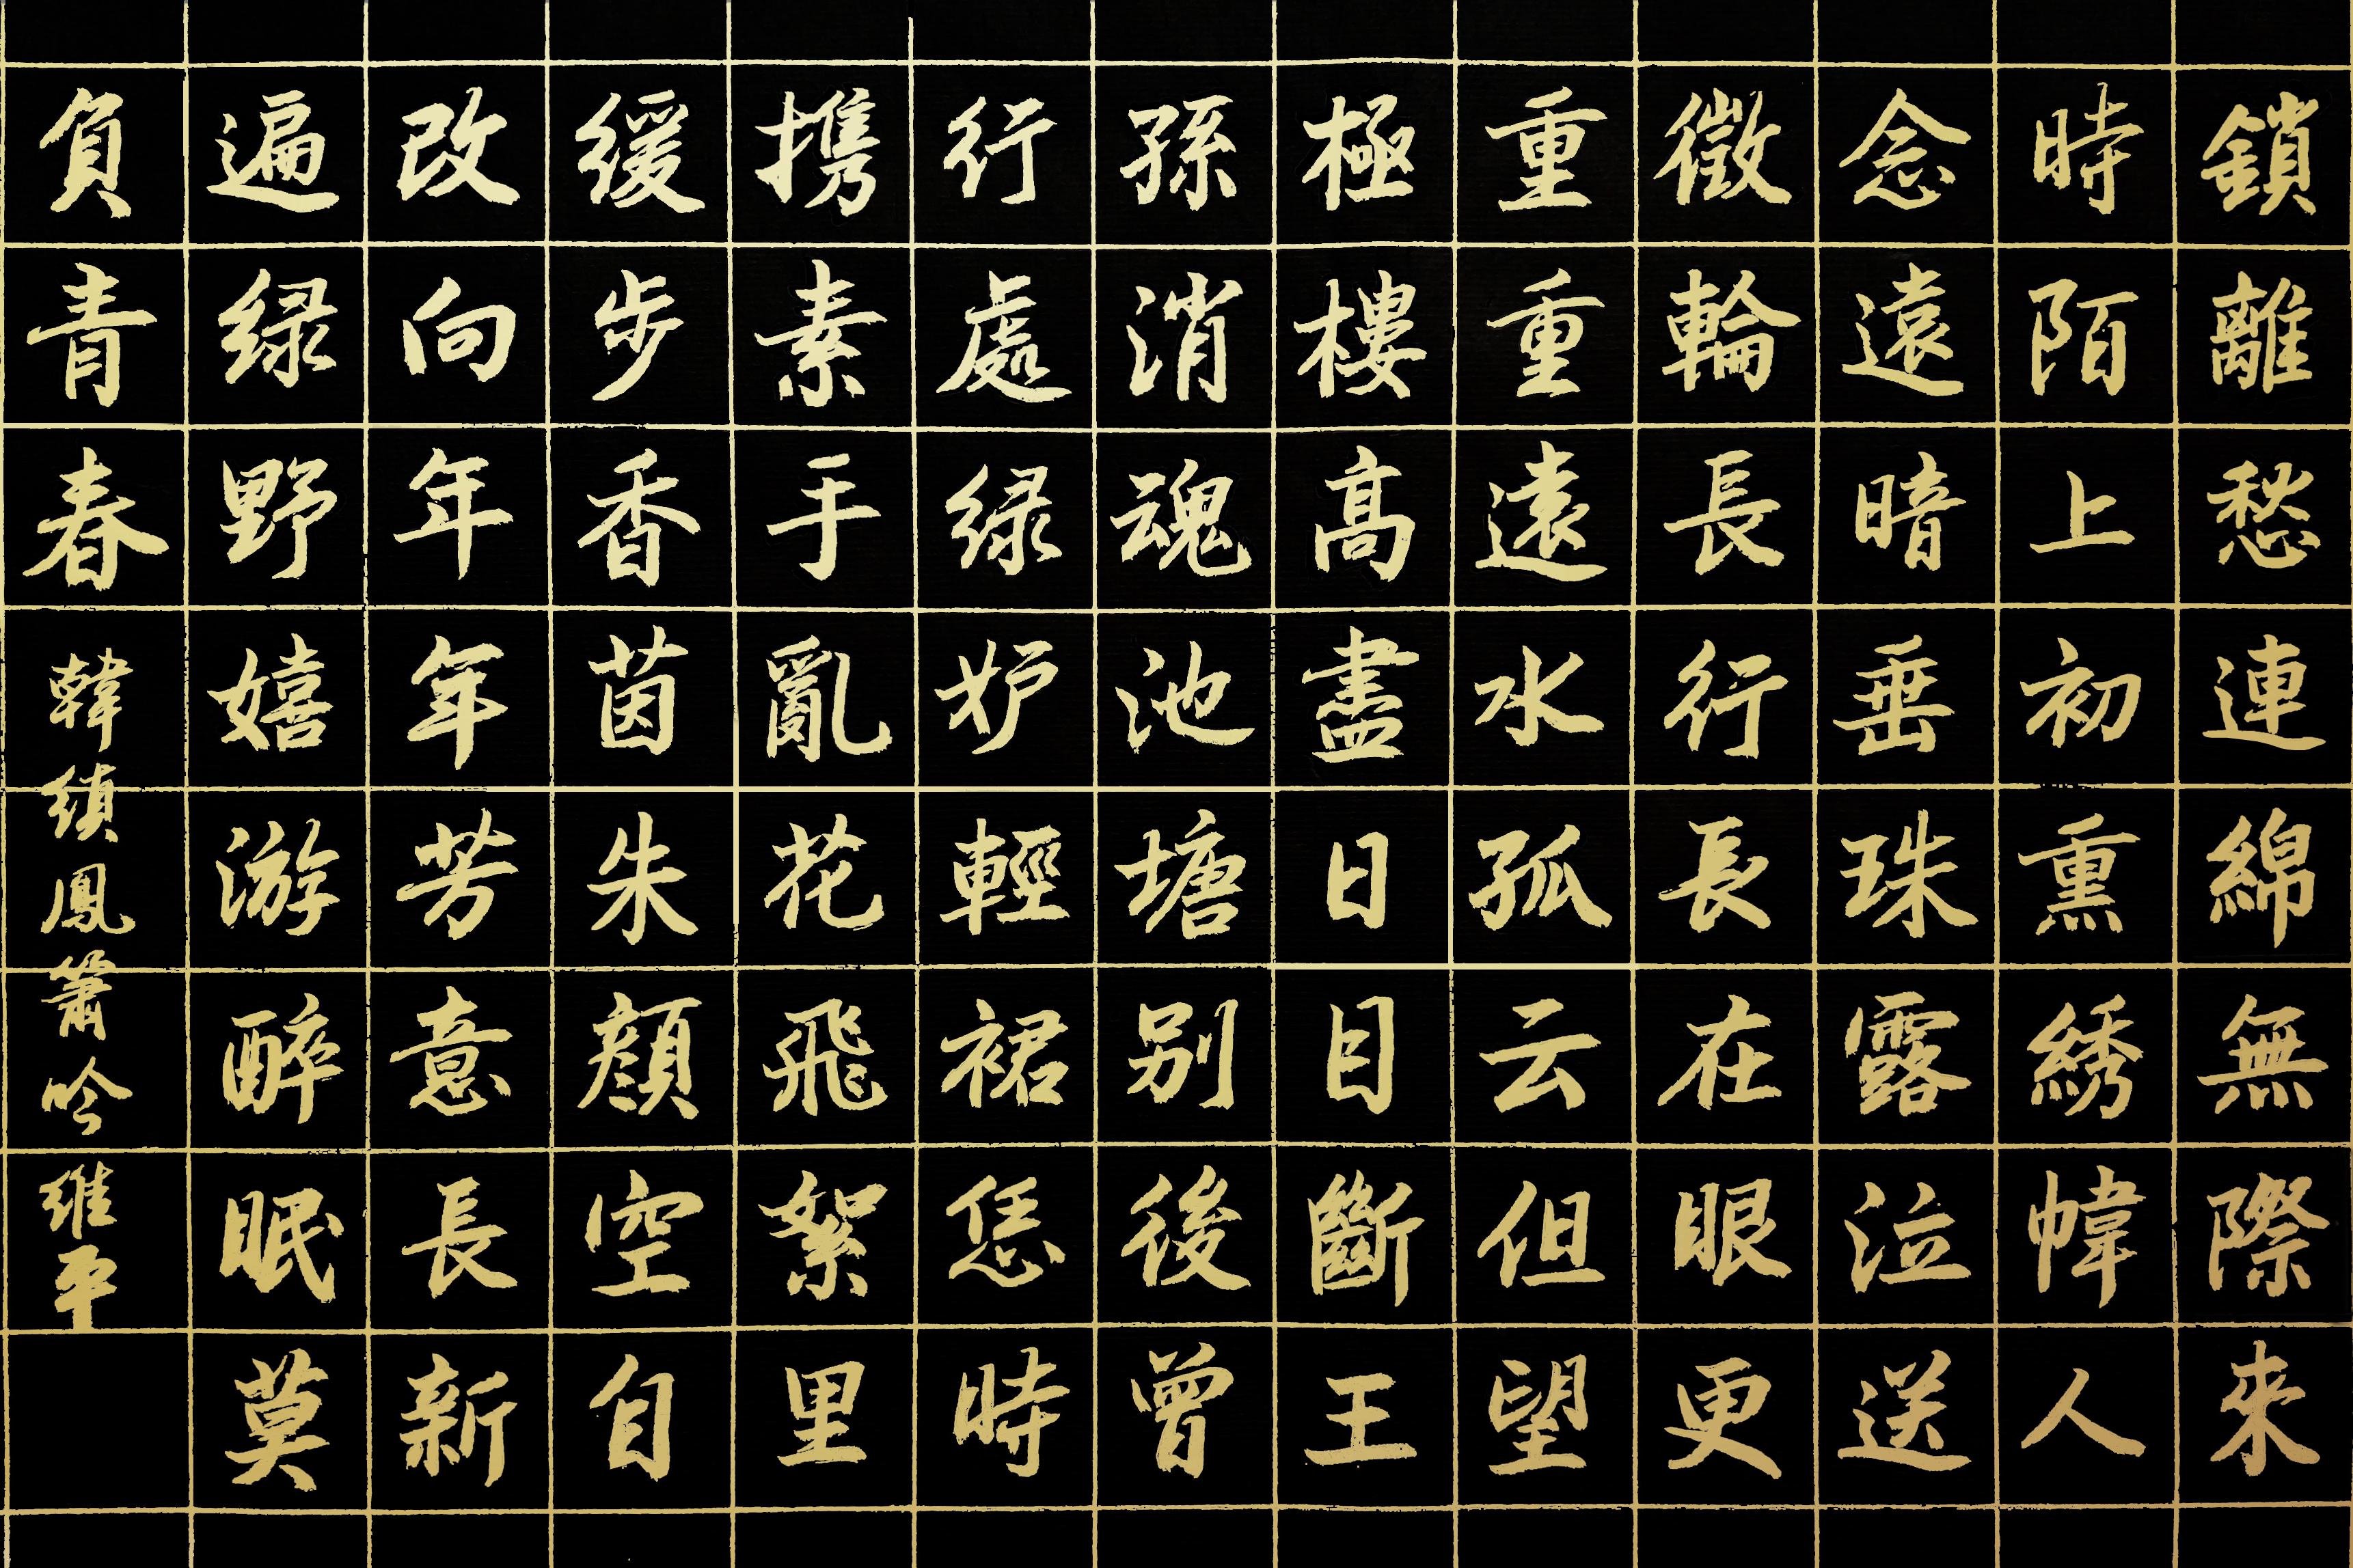 鎖離愁連綿無際來
時陌上初熏綉幃人
念遠暗垂珠露泣送
徵輪長行長在眼更
重重遠水孤云但望
極樓高盡日目斷王
孫消魂池塘别後曾
行處緑妒輕裙恁時
携素手亂花飛絮里
緩步香茵朱顔空自
改向年年芳意長新
遍緑野嬉游醉眠莫
負青春韓縝鳳簫吟維平